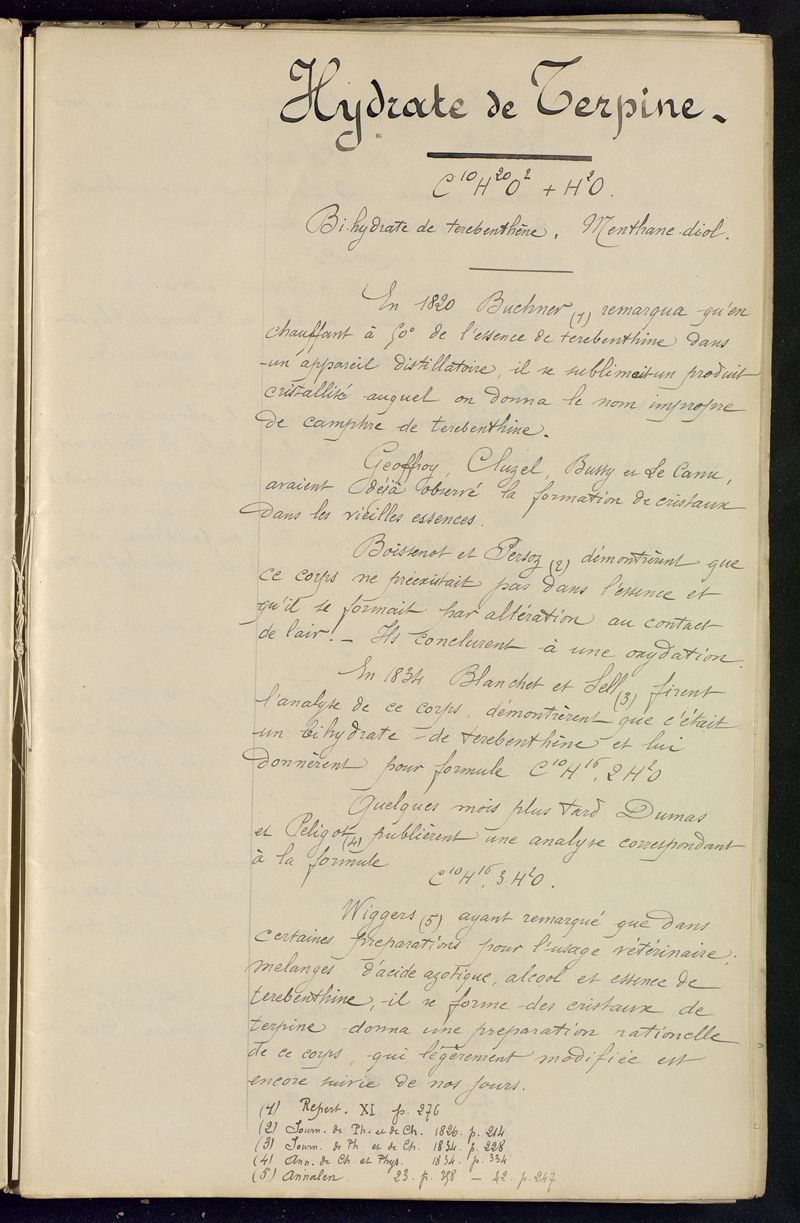 Hydrate de Terpine.
C¹⁰H²⁰O² + H²O.
Bi-hydrate de terebenthène, Menthane-diol.
En 1820 Buchner (1) remarqua qu'en
chauffant à 50° de l'essence de terebenthine dans
un appareil distillatoire, il se sublimait un produit
cristallisé auquel on donna le nom impropre
de camphre de terebenthine.
Geoffroy, Cluzel, Bussy et Le Canu,
avaient déjà observé la formation de cristaux
dans les vieilles essences.
Boissenot et Persoz (2) démontrèrent que
ce corps ne préexistait pas dans l'essence et
qu'il se formait par altération au contact
de l'air. – Ils conclurent à une oxydation.
En 1834 Blanchet et Sell (3) firent
l'analyse de ce corps, démontrèrent que c'était
un bihydrate de terebenthène et lui
donnèrent pour formule C¹⁰H¹⁶, 2H²O
Quelques mois plus tard Dumas
et Peligot (4) publièrent une analyse correspondant
à la formule
C¹⁰H¹⁶, 3H²O.
Wiggers (5) ayant remarqué que dans
certaines préparations pour l'usage vétérinaire,
melanges d'acide azotique, alcool et essence de
terebenthine, il se forme des cristaux de
terpine donna une préparation rationelle
de ce corps, qui légèrement modifiée est
encore suivie de nos jours.
(1) Repert. XI p. 276
(2) Journ. de Ph. et de Ch. 1826. p. 214
(3) Journ. de Ph et de Ch. 1834. p. 228
(4) Ann. de Ch. et Phys. 1834. p. 334
(5) Annalen 23. p. 358 – 42. p. 247